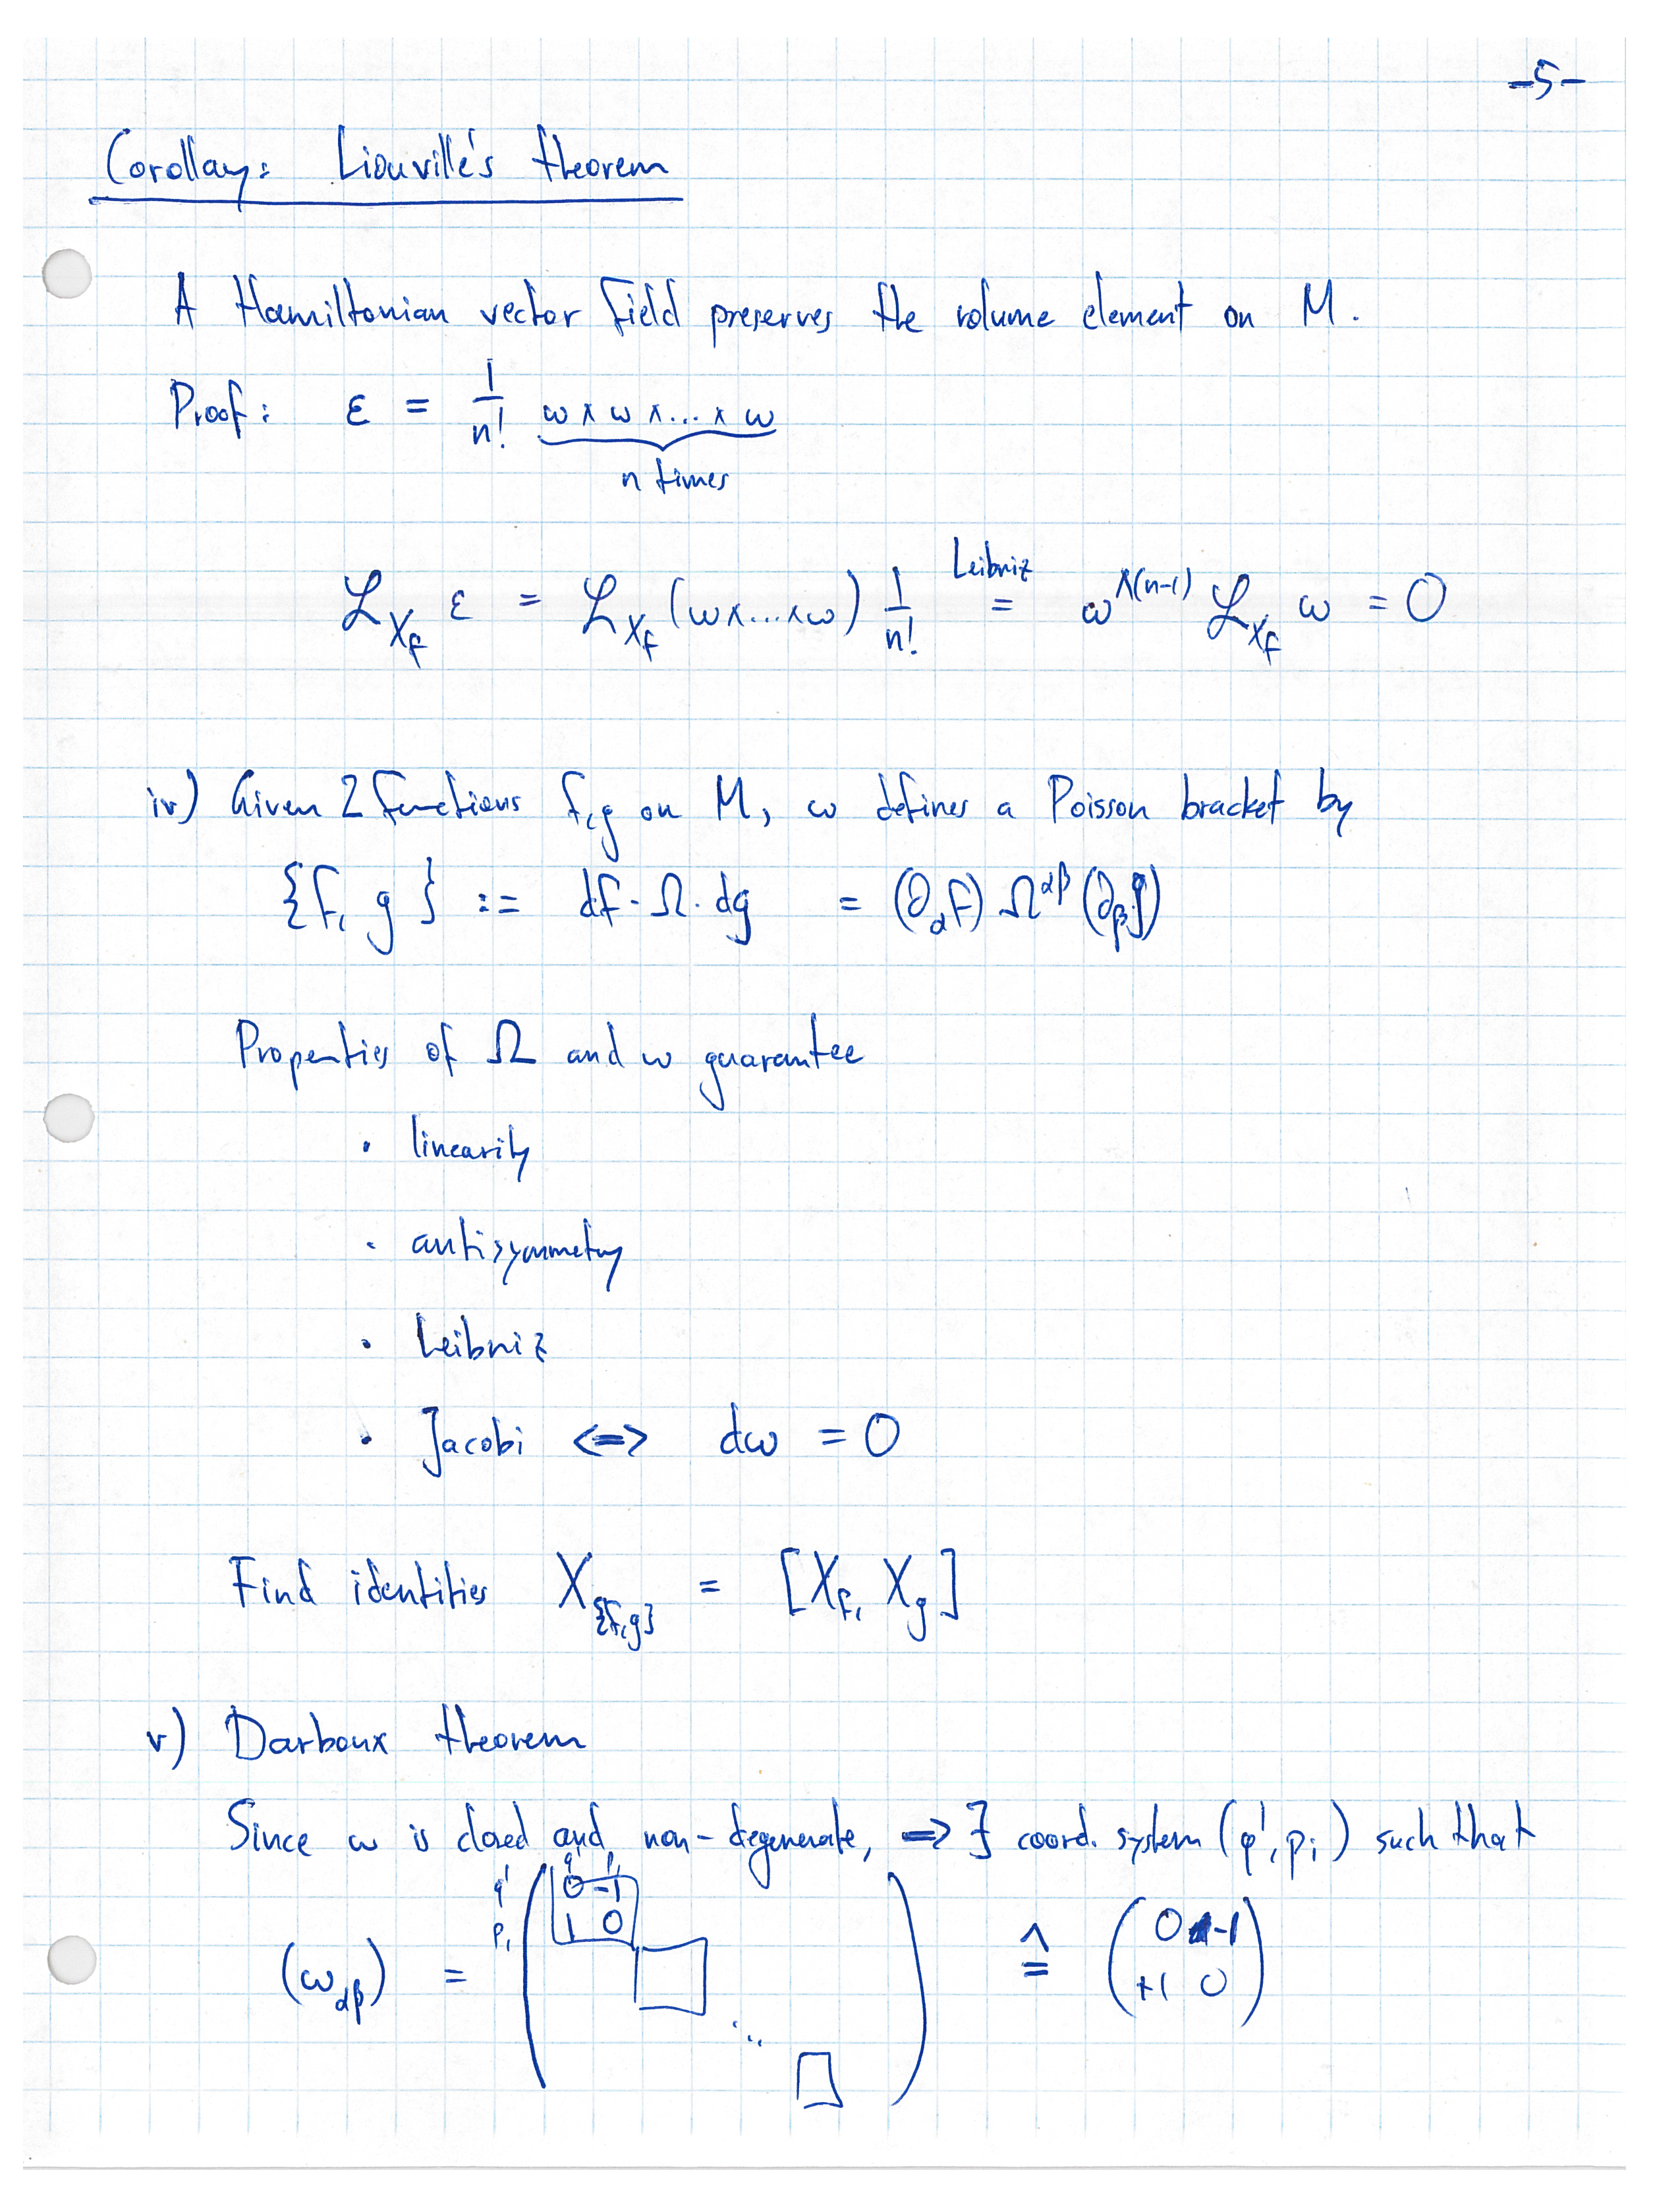 -5-
Corollay: Liouville's theorem
A Hamiltonian vector field preserves the volume element on M.
Proof: ε = 1/n! ω ∧ ω ∧ ... ∧ ω
n times
ℒ_{X_f} ε = ℒ_{X_f} (ω∧...∧ω) 1/n! =^{Leibniz} ω^{∧(n-1)} ℒ_{X_f} ω = 0
iv) Given 2 functions f,g on M, ω defines a Poisson bracket by
{f, g} := df · Ω · dg = (∂_α f) Ω^{αβ} (∂_β g)
Properties of Ω and ω guarantee
· linearity
· antisymmetry
· Leibniz
· Jacobi <=> dω = 0
Find identities X_{{f,g}} = [X_f, X_g]
v) Darboux theorem
Since ω is closed and non-degenerate, => ∃ coord. system (q^i, p_i) such that
q^1 p_1
(ω_{αβ}) = q^1 p_1 ( 0 -1 1 0 ... ) ≙ ( 0 -1 +1 0 )